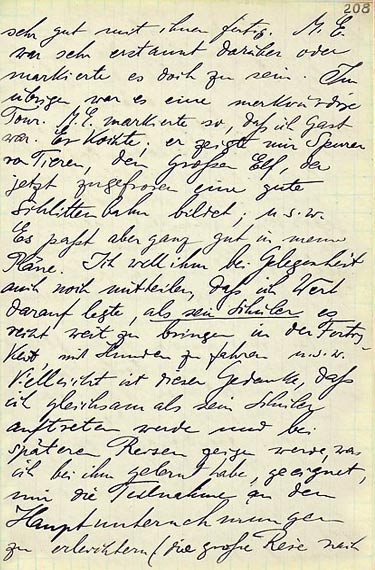 208
sehr gut mit ihnen fertig. M. E.
war sehr erstaunt darüber oder
markierte es doch zu sein. Im
übrigen war es eine merkwürdige
Tour. M. E. markierte so, daß ich Gast
war. Er kochte; er zeigte mir Spuren
von Tieren, den großen Elf, der
jetzt zugefroren eine gute
Schlittenbahn bildet; u.s.w.
Es paßt aber ganz gut in meine
Pläne. Ich will ihm bei Gelegenheit
auch noch mitteilen, daß ich Wert
darauf legte, als sein Schüler es
recht weit zu bringen in der Fertig-
keit, mit Hunden zu fahren u.s.w.
Vielleicht ist dieser Gedanke, daß
ich gleichsam als sein Schüler
auftreten werde und bei
späteren Reisen zeigen werde, was
ich bei ihm gelernt habe, geeignet,
mir die Teilnahme an den
Hauptunternehmungen
zu erleichtern (die große Reise nach